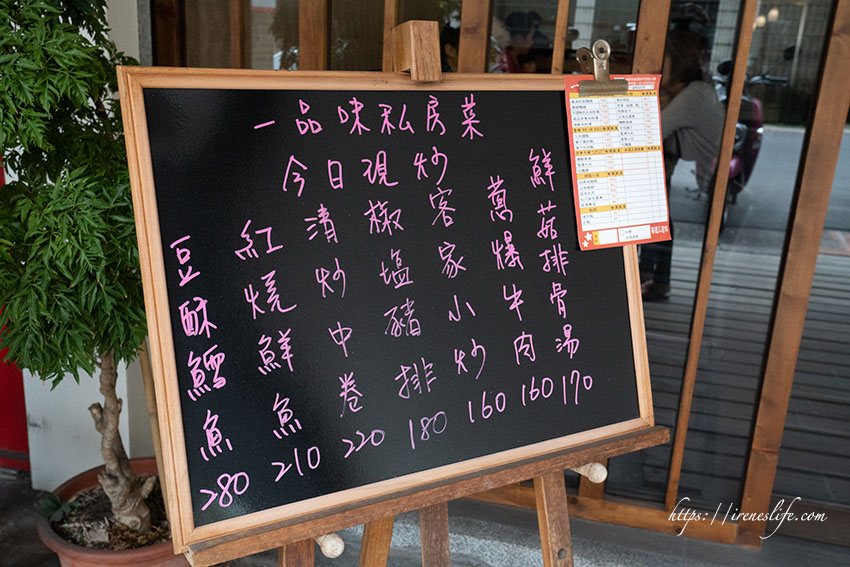 一品味私房菜
今日現炒
鮮菇排骨湯 170
蔥爆牛肉 160
客家小炒 160
椒塩豬排 180
清炒中卷 220
紅燒鮮魚 210
豆酥鱈魚 280
https://ireneslife.com